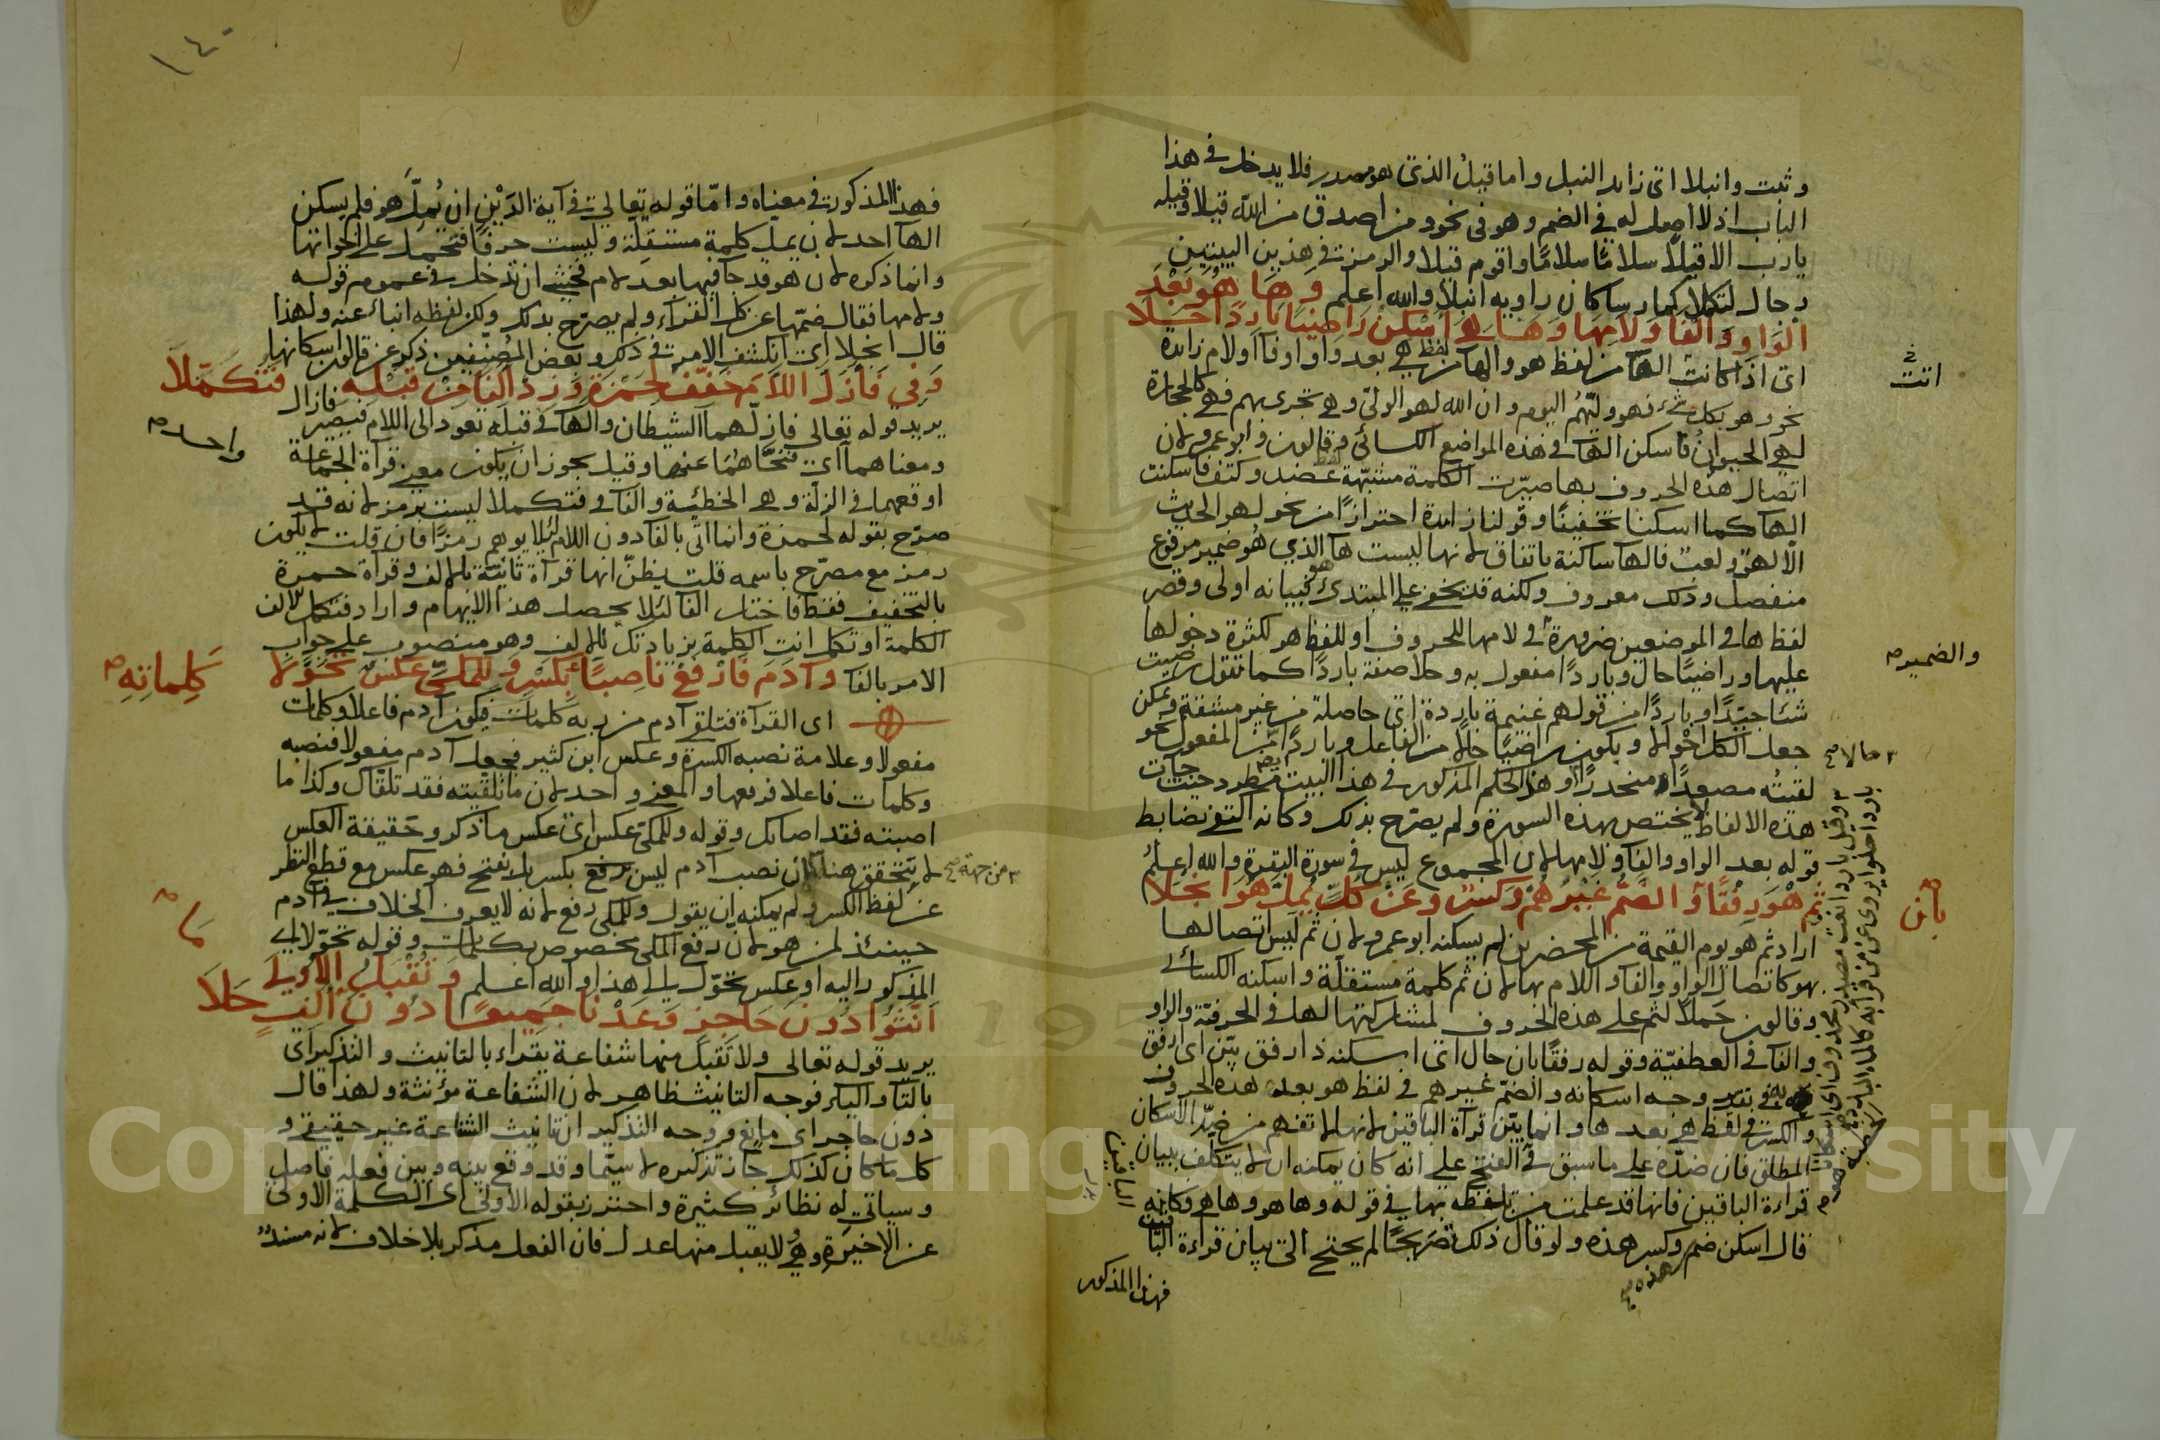 وثبت وانبلا اى زايد النبل واما قيل الذى هو مصدر فلا يدخل فى هذا
الباب اذ لا اصل له فى الضم وهو فى نحو ومن اصدق من الله قيلا وقيله
يارب الا قيلا سلامًا سلامًا واقوم قيلا والرمز فى هذين البيتين
رجال لتكملا كما رسا كان راويه انبلا والله اعلم وَهَا هُوَ بَعْدَ
الوَاوِ وَالْفَا وَلَامِهَا وَهَا هِىَ أَسْكِنْ رَاضِيًا بَارِدًا حَلَا
اى اذا كانت الها من لفظ هو والها من لفظ هى بعد واو او فا او لام زايدة
نحو وهو بكل شىء فهو وليهم اليوم وان الله لهو الولى وهى تجرى بهم فهى كالحجارة
لهى الحيوان فاسكن الها فى هذه المواضع الكسائى وقالون وابو عمرو لان
اتصال هذه الحروف بها صيرت الكلمة مشبهة لفظ عضد وكتف فاسكنت
الها كما اسكنا تخفيفًا وقولنا زايدة احترازًا من نحو لهو الحديث
الا لهو ولعب فالها ساكنة باتفاق لانها ليست ها الذى هو ضمير مرفوع
منفصل وذلك معروف ولكنه قد يخفى على المبتدى فبيانه اولى وقصر
لفظ ها فى الموضعين ضرورة فى لامها للحروف او للفظ هو لكثرة دخولها
عليها وراضيًا حال وباردًا مفعول به وحلا صفة باردًا كما تقول رضيت
شئا جيدًا وباردًا من قولهم غنيمة باردة اى حاصلة من غير مشقة ويمكن
جعل الكل احوالا ويكون راضيًا حالا من الفاعل وباردًا من المفعول نحو
لقيته مصعدًا منحدرًا وهذا الحكم المذكور فى هذا البيت مطرد حيث جآت
هذه الالفاظ لا يختص بهذه السورة ولم يصرح بذلك وكانه اكتفى بضابط
قوله بعد الواو والفا ولامها لان المجموع ليس فى سورة البقرة والله اعلم
ثُمَّ هْوَ رِفْقًا بَانَ وَالضَّمُّ غَيْرُهُمْ وَكَسْرٌ وَعَنْ كُلٍّ يُمِلَّ هُوَ انْجَلَا
اراد ثم هو يوم القيمة من المحضرين لم يسكنه ابو عمرو لان ثم ليس اتصالها
بهو كاتصال الواو والفا واللام بها لان ثم كلمة مستقلة واسكنه الكسائى
وقالون حملا لثم على هذه الحروف لمشاركتها لها فى الحرفية والواو
والفا فى العطفية وقوله رفقا بان حال اى اسكنه ذا رفق بين اى ارفق
به فى تقرير وجه اسكانه والضم غيرهم فى لفظ هو بعد هذه الحروف
والكسر فى لفظ هى بعدها وانما بين قرآة الباقين لانها لا تفهم من ضد الاسكان
المطلق فان ضده على ما سبق فى الفتح على انه كان يمكنه ان لا يتكلف ببيان
قراءة الباقين فانها قد علمت من تلفظه بها فى قوله وها هو وها هى فكانه
قال اسكن ضم وكسر هذه ولو قال ذلك تصريحًا لم يحتج الى بيان قراءة
فهذا المذكور
اتت
والضمير م
حالا
بان
الباقين
١٤٠
فهذا المذكور فى معناه وامّا قوله تعالى فى آية الدَّيْنِ ان يُمِلَّ هو فلم يسكن
الها احد لان يمل كلمة مستقلة وليست حرفًا فتحمل على اخواتها
وانما ذكره لان هو قد جآ فيها بعد لام فخشى ان تدخل فى عموم قوله
ولامها فقال ضمّها عن كل القرآء ولم يصرح بذلك ولكن لفظه انباء عنه ولهذا
قال انجلا اى انكشف الامر فى ذلك وبعض المصنفين ذكر عن قالون اسكانها
وَفِى فَأَزَلَّ اللَّامَ خَفِّفْ لِحَمْزَةٍ وَزِدْ أَلِفًا مِنْ قَبْلِهِ فَتُكَمِّلَا
يريد قوله تعالى فازلّهما الشيطان والها فى قبله تعود الى اللام فيصير فازال
ومعناهما اى فنحّاهما عنها وقيل يجوز ان يكون معنى قرآة الجماعة
اوقعهما فى الزلة وهى الخطئية والفا فى فتكملا ليست برمز لانه قد
صرّح بقوله لحمزة وانما اتى بالفا دون اللام لئلا يوهم رمزًا فان قلت لا يكون
رمز مع مصرّح باسمه قلت يظنّ انها قرآة ثانية بالالف وقرآة حمزة
بالتخفيف فقط فاختار الفا لئلا يحصل هذا الابهام واراد فتكمل الالف
الكلمة او تكمل انت الكلمة بزيادتك للالف وهو منصوب على جواب
الامر بالفا وَآدَمَ فَارْفَعْ نَاصِبًا بِكَسْرٍ وَلِلْمَكِّىِّ عَكْسٌ تَحَوَّلَا
اى القرآة فتلقى آدم من ربه كلمات فيكون آدم فاعلا وكلمات
مفعولا وعلامة نصبه الكسرة وعكس ابن كثير فجعل آدم مفعولا فنصبه
وكلمات فاعلا فرفعها والمعنى واحد لان ما تلقيته فقد تلقّاك وكذا ما
اصبته فقد اصابك وقوله وللمكى عكس اى عكس ما ذكر وحقيقة العكس
لا يتحقق هنا لان نصب آدم ليس بكسر بل بفتح فهو عكس مع قطع النظر
عن لفظ الكسر ولم يمكنه ان يقول وللمكى رفع لانه لا يعرف الخلاف فى آدم
حينئذ لمن هو لان رفع المكى مخصوص بكلمات وقوله تحوّلا اى
المذكور اليه او عكس تحوّل الى هذا والله اعلم وَتُقْبَلُ الْأُولَى
أَنَّثُوا دُونَ حَاجِزٍ وَعَدْنَا جَمِيعًا دُونَ مَا أَلِفٍ حَلَا
يريد قوله تعالى ولا تقبل منها شفاعة يقراء بالتانيث والتذكير اى
بالتا والياء فوجه التانيث ظاهر لان الشفاعة مؤنثة ولهذا قال
دون حاجز اى مانع ووجه التذكير ان تانيث الشفاعة غير حقيقى و
كل ما كان كذلك جاز تذكيره لا سيّما وقد وقع بينه وبين فعله فاصل
وسياتى له نظائر كثيرة واحترز بقوله الاولى اى الكلمة الاولى
عن الاخيرة وهى ولا يقبل منها عدل فان الفعل مذكر بلا خلاف لانه مسند
واحد م
كَلِمَاتِهِ م
من جهة
مَا